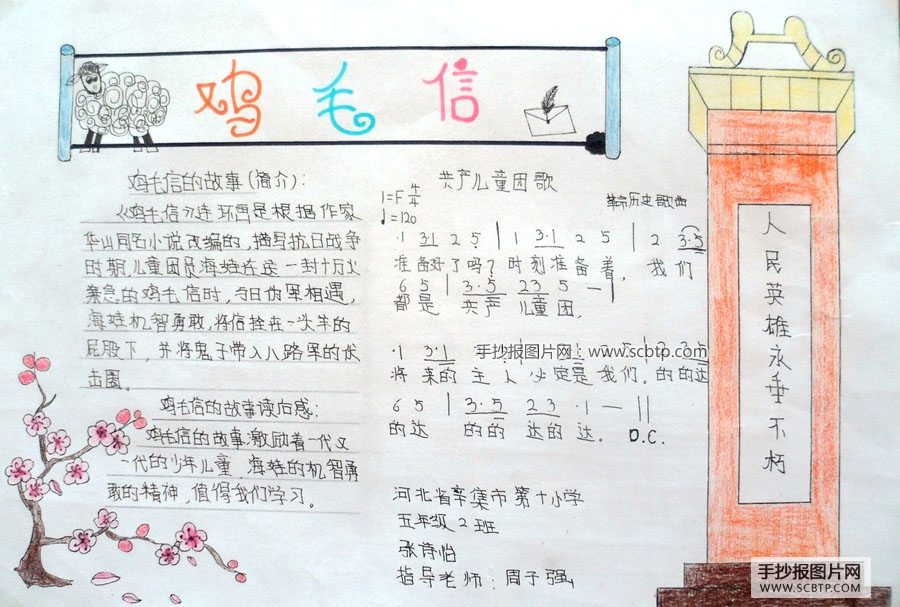 鸡毛信
鸡毛信的故事(简介):
《鸡毛信》连环画是根据作家
华山同名小说改编的,描写抗日战争
时期儿童团员海娃在送一封十万火
急的鸡毛信时,与日伪军相遇,
海娃机智勇敢,将信拴在一头羊的
屁股下,并将鬼子带入八路军的伏
击圈。
鸡毛信的故事读后感:
鸡毛信的故事激励着一代又
一代的少年儿童,海娃的机智勇
敢的精神,值得我们学习。
共产儿童团歌
1=F 4/4
♩=120
革命历史歌曲
·1 31 2 5 | 1 3·1 2 5 | 2 3·5
准备好了吗?时刻准备着,我们
6 5 | 3·5 23 5 — |
都是 共产 儿童团,
手抄报图片网:www.scbtp.com
将来的主人 必定是我们。的的达
6 5 | 3·5 23 ·1 — ||
的达 的的 达的 达。 D.C.
河北省辛集市第十小学
五年级2班
张诗怡
指导老师:周子强
人民英雄永垂不朽
手抄报图片网
WWW.SCBTP.COM